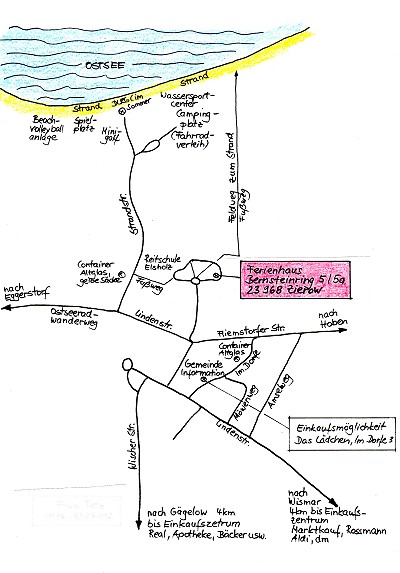 OSTSEE
Strand
Strand
Bus (im
Sommer
Wassersport-
center
Camping-
platz
(Fahrrad-
verleih)
Beach-
volleyball
anlage
Spiel-
platz
Mini-
golf
Strandstr.
Feldweg zum Strand
Fußweg
Container
Altglas,
gelbe Säcke
Reitschule
Elsholz
Fußweg
Ferienhaus
Bernsteinring 5/5a
23968 Zierow
nach
Eggerstorf
Ostseerad-
wanderweg
Lindenstr.
Fliemstorfer Str.
nach
Hoben
Container
Altglas
Im Dorfe
Gemeinde
Information
Möwenweg
Amselweg
Lindenstr.
Wischer Str.
Einkaufsmöglichkeit
Das Lädchen, Im Dorfe 3
nach Gägelow 4km
bis Einkaufszetrum
Real, Apotheke, Bäcker usw.
nach
Wismar
4km bis Einkaufs-
zentrum
Marktkauf, Rossmann
Aldi, dm